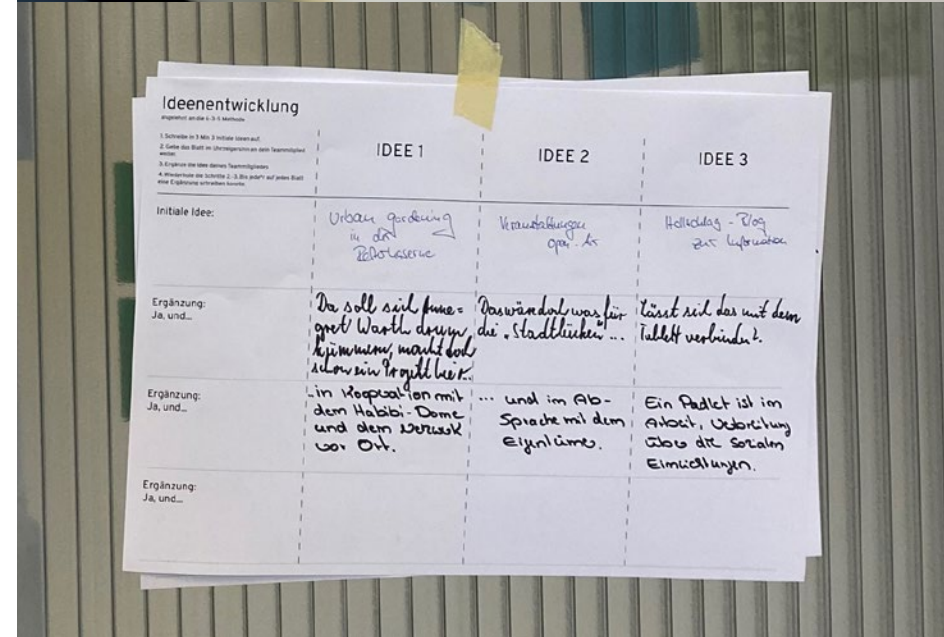 Ideenentwicklung
angelehnt an die 6-3-5 Methode
1. Schreibe in 3 Min 3 initiale Ideen auf.
2. Gebe das Blatt im Uhrzeigersinn an dein Teammitglied
weiter.
3. Ergänze die Idee deines Teammitgliedes
4. Wiederhole die Schritte 2.-3. Bis jede*r auf jedes Blatt
eine Ergänzung schreiben konnte.
IDEE 1
IDEE 2
IDEE 3
Initiale Idee:
Urban gardening
in der
Veranstaltungen
open Air
Hallschlag - Blog
zur Information
Ergänzung:
Ja, und...
Da soll sich Anne=
gret Warth drum
kümmern, macht doch
schon ein Projekt hier..
Das wär doch was für
die "Stadtlücken"...
Lässt sich das mit dem
Tablett verbinden?
Ergänzung:
Ja, und...
..in Kooperation mit
dem Habibi-Dome
und dem
vor Ort.
... und im Ab-
sprache mit dem
Eigentümer.
Ein Padlet ist im
Arbeit, Verbreitung
über die Sozialen
Einrichtungen.
Ergänzung:
Ja, und...